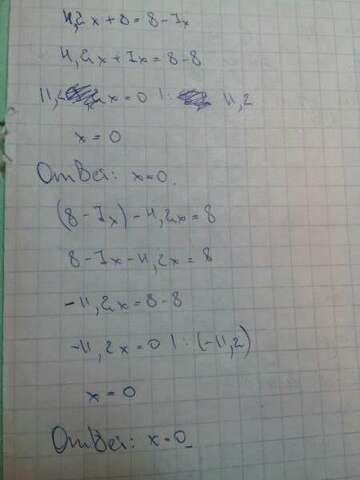 4,2x + 8 = 8 - 7x
4,2x + 7x = 8 - 8
11,2x = 0 | : 11,2
x = 0
Ответ: x = 0.
(8 - 7x) - 4,2x = 8
8 - 7x - 4,2x = 8
-11,2x = 8 - 8
-11,2x = 0 | : (-11,2)
x = 0
Ответ: x = 0